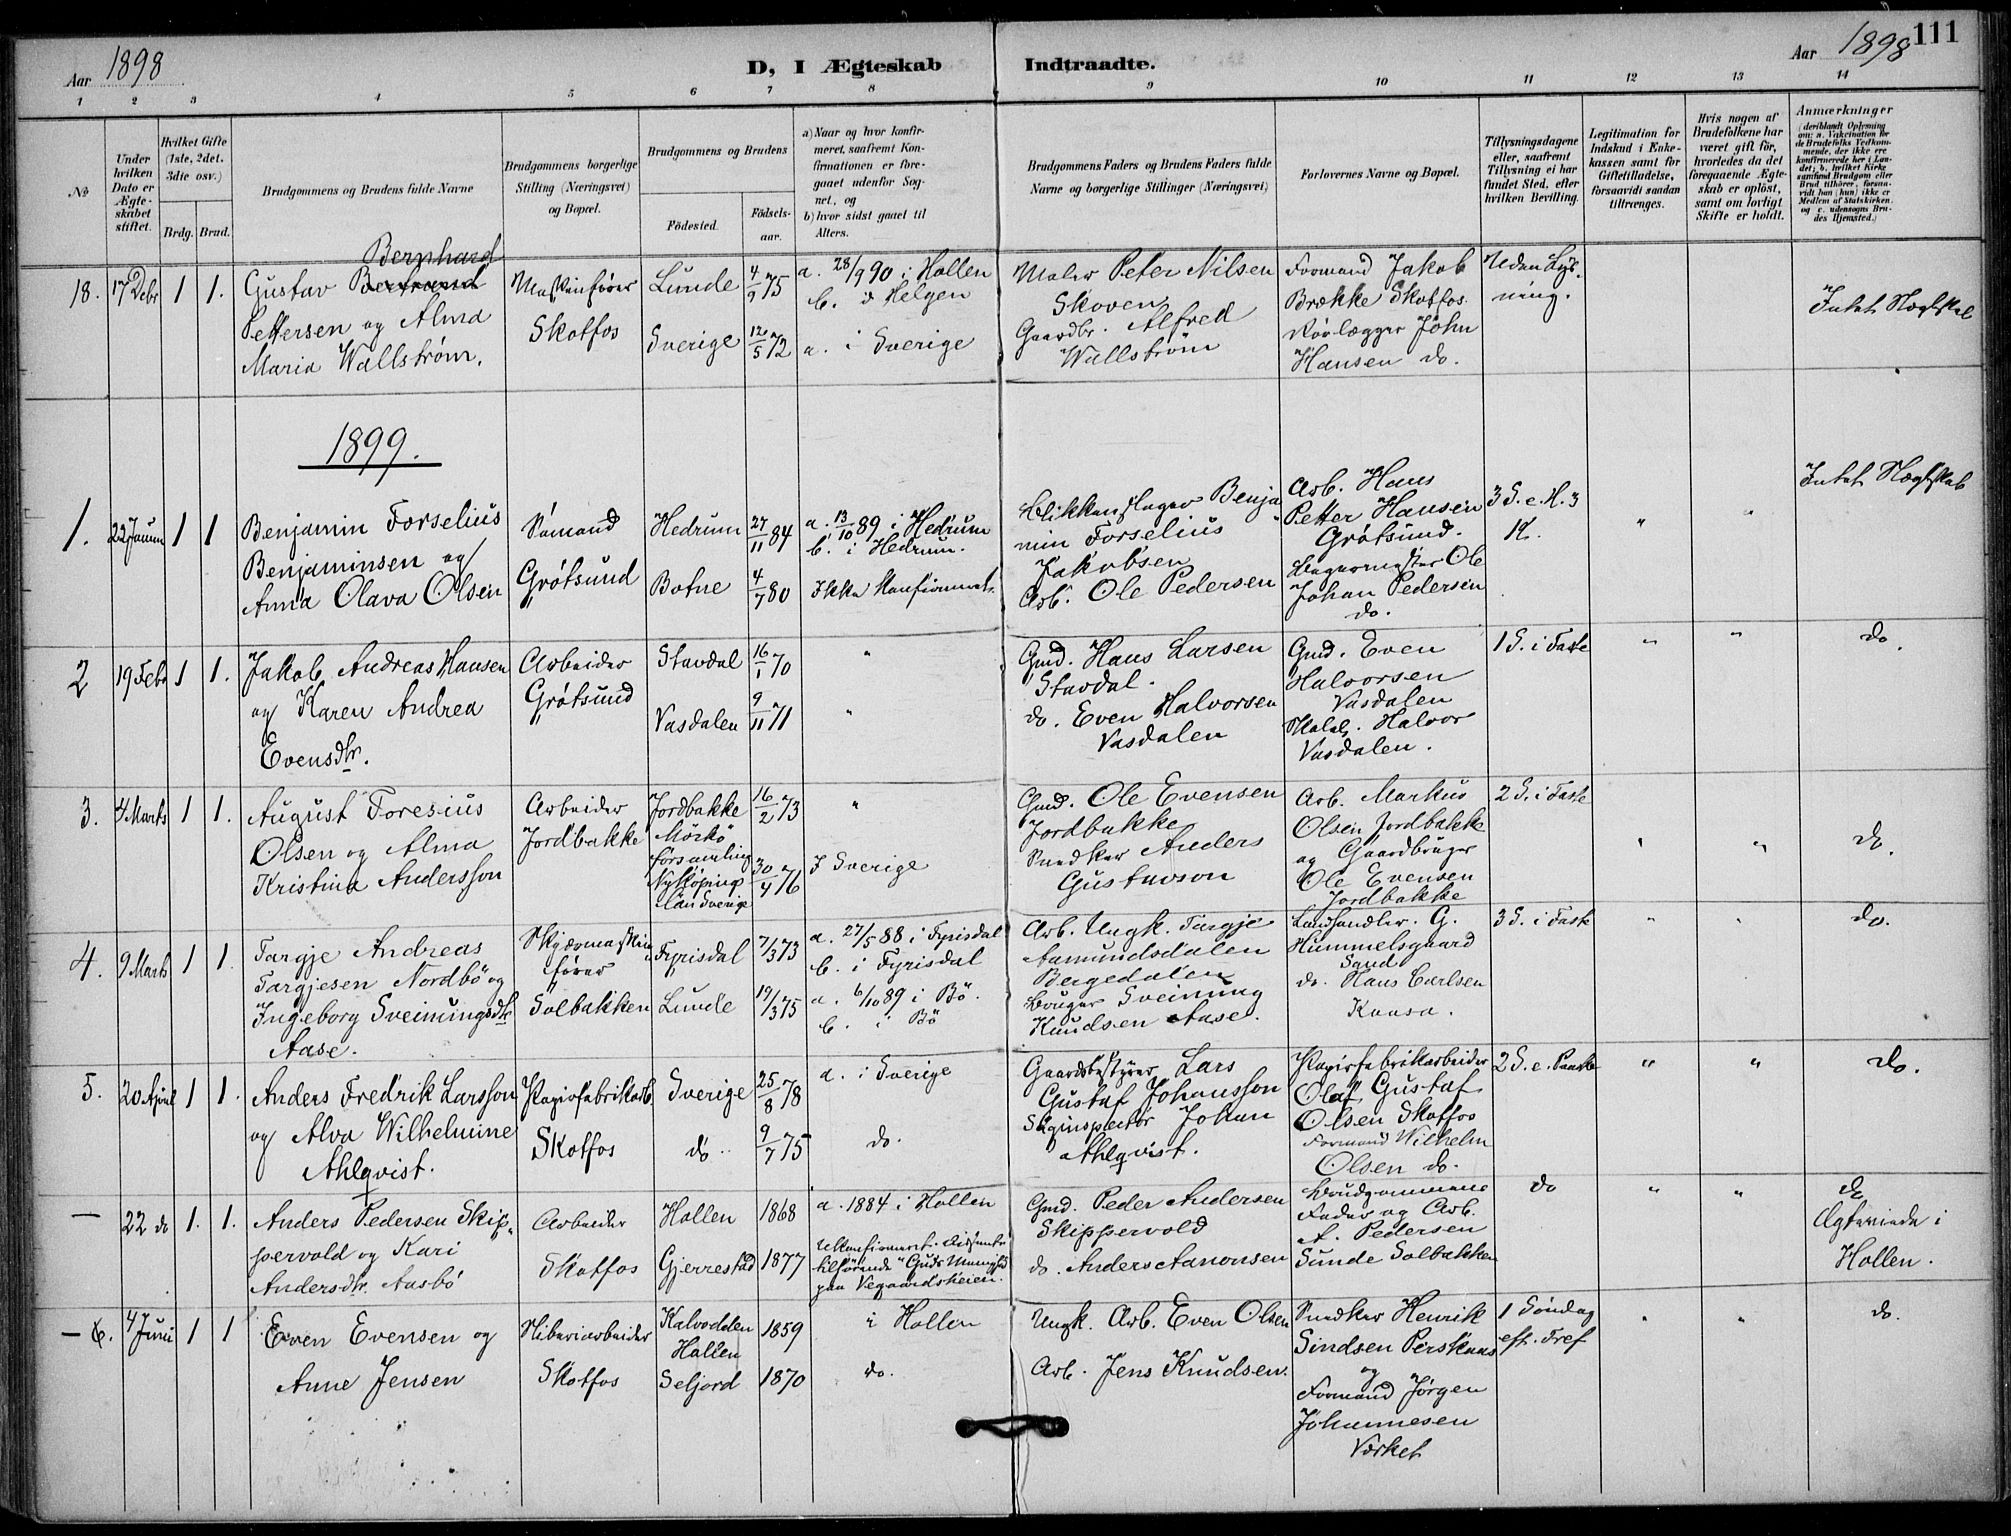 Aar 1898
D, I Ægteskab
Indtraadte.
Aar 1898
111
1
2
3
4
5
6
7
8
9
10
11
12
13
14
№
Under
hvilken
Dato er
Ægte-
skabet
stiftet.
Hvilket Gifte
(1ste, 2det.
3die osv.)
Brdg.
Brud.
Brudgommens og Brudens fulde Navne
Brudgommens borgerlige
Stilling (Næringsvei)
og Bopæl.
Brudgommens og Brudens
Fødested.
Fødsels-
aar.
a) Naar og hvor konfir-
meret, saafremt Kon-
firmationen er fore-
gaaet udenfor Sog-
net, og
b) hvor sidst gaaet til
Alters.
Brudgommens Faders og Brudens Faders fulde
Navne og borgerlige Stillinger (Næringsvei)
Forlovernes Navne og Bopæl.
Tillysningsdagene
eller, saafremt
Tillysning ei har
fundet Sted, efter
hvilken Bevilling.
Legitimation for
Indskud i Enke-
kassen samt for
Giftetilladelse,
forsaavidt saadan
tiltrænges.
Hvis nogen af
Brudefolkene har
været gift før,
hvorledes da det
foregaaende Ægte-
skab er opløst,
samt om lovligt
Skifte er holdt.
Anmærkninger
(deriblandt Oplysning
om: a. Vakcination for
de Brudefolks Vedkom-
mende, der ikke ere
konfirmerede her i Lan-
det; b. hvilket Kirke
samfund Brudgom eller
Brud tilhører, forsaa-
vidt han (hun) ikke er
Medlem af Statskirken.
og c. udensogns Bru-
des Hjemsted.)
18.
17 Debr
1
1.
Bernhard
Gustav Bertrand
Pettersen og Alma
Maria Wallstrøm.
Maskinfører
Skotfos
Lunde
Sverige
4/9 75
12/5 72
a. 28/9 90 i Hollen
b. i Helgen
a. i Sverige
Maler Peter Nilsen
Skoven
Gaardbr. Alfred
Wallström
Formand Jakob
Brække Skotfos.
Rörlægger John
Hansen do.
Uden Lys-
ning.
Intet Slægtskab
1899.
1.
22 Januar
1
1
Benjamin Forselius
Benjaminsen og
Anna Olava Olsen
Sømand
Grøtsund
Hedrum
Botne
27/11 84
4/7 80
a. 13/10 89 i Hedrum
b. i Hedrum.
Ikke konfirmeret.
Blikkenslager Benja-
min Forselius
Jakobsen
Arb. Ole Pedersen
Arb. Hans
Petter Hansen
Grøtsund.
Ole
Johan Pedersen
do.
3 S. e. H. 3
K.
"
"
Intet Slægtskab
2
19 Febr
1
1.
Jakob Andreas Hansen
og Karen Andrea
Evensdtr.
Arbeider
Grøtsund
Stavdal
Vasdalen
16/1 70
9/11 71
"
"
Gmd. Hans Larsen
Stavdal.
do. Even Halvorsen
Vasdalen
Gmd. Even
Halvorsen
Vasdalen
Halvor
Vasdalen.
1 S. i Faste
"
"
do.
3.
4 Marts
1
1.
August Toresius
Olsen og Alma
Kristina Andersson
Arbeider
Jordbakke
Jordbakke
Mörkö
församling
Nyköpings
län Sverige
16/2 73
30/4 76
"
I Sverige
Gmd. Ole Evensen
Jordbakke
Snedker Anders
Gustavson
Arb. Markus
Olsen Jordbakke
og Gaardbruger
Ole Evensen
Jordbakke
2 S. i Faste
"
"
do.
4.
9 Marts
1
1.
Targje Andreas
Targjesen Nordbö og
Ingeborg Sveinungsdtr
Aase.
fører
Solbakken
Fyrisdal
Lunde
7/3 73
19/3 75
a. 27/5 88 i Fyrisdal
b. i Fyrisdal
a. 6/10 89 i Bö.
b. i Bö
Arb. Ungk. Targje
Aamundsdalen
Bergedalen
Bruger Sveinung
Knudsen Aase.
Landhandler. G.
Hummelsgaard
Sand
do. Hans Carlsen
Kaasa.
3 S. i Faste
"
"
do.
5.
20 April
1
1.
Anders Fredrik Larsson
og Alva Wilhelmine
Ahlqvist.
Papirfabrikarb.
Skotfos
Sverige
do
25/8 78
9/7 75
a. i Sverige
do.
Gaardsbestyrer Lars
Gustaf Johansson
Johan
Ahlqvist.
Papirfabrikarbeider
Olaf Gustaf
Olsen Skotfos
Formand Wilhelm
Olsen do.
2 S. e. Paaske
"
"
do.
—
22 do
1.
1.
Anders Pedersen Skip-
pervold og Kari
Andersdtr. Aasbö
Arbeider
Skotfos
Hollen
Gjerrestad
1868
1877
a. 1884 i Hollen
Ukonfirmeret. Dissenter
tilhørende "Guds Menighed
paa Vegaardsheien.
Gmd. Peder Andersen
Skippervold
do. Anders Aanonsen
Brudgommens
Fader og Arb.
A. Pedersen
Sunde Solbakken
do
"
"
do
Ægteviede i
Hollen.
— 6.
4 Juni
1
1
Even Evensen og
Anne Jensen
Sliberiarbeider
Skotfos
Kalvodden
Hollen
Seljord
1859
1870
i Hollen
do.
Ungk. Arb. Even Olsen
Arb. Jens Knudsen.
Snedker Henrik
Sindsen Perskaas
og
Formand Jørgen
Johannesen
Værket
1 Søndag
eft. Tref
"
"
do.